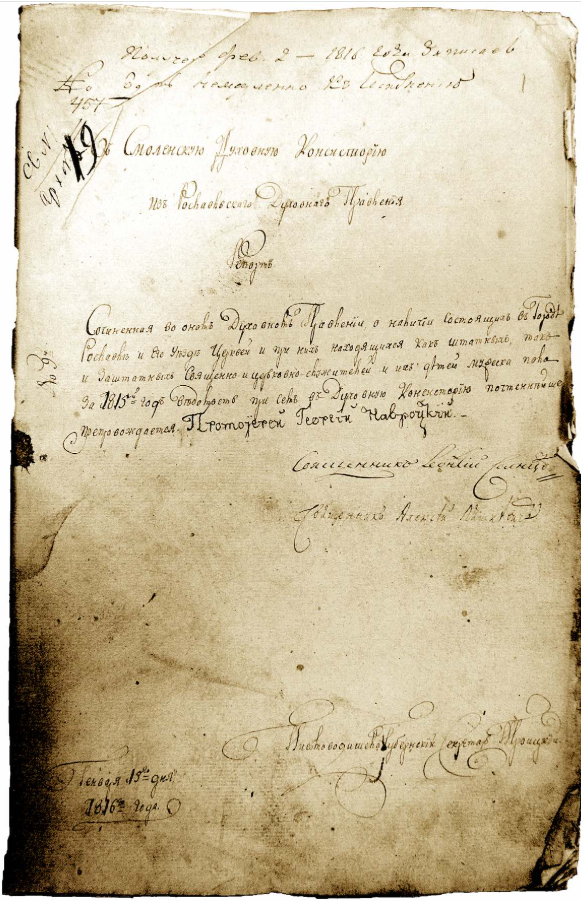 Получ. фев. 2 – 1816 года Записав
доложить немедленно къ
№
457
19
Въ Смоленскую Духовную Консисторію
Изъ Рославльскаго Духовнаго Правленія
Репортъ
Сочиненная во ономъ Духовномъ Правленіи о наличіи состоящихъ въ Городѣ
Рославлѣ и его Уездѣ Церквей и при нихъ находящихся какъ штатныхъ, такъ
и заштатныхъ Священно и церковно-служителей и ихъ дѣтей мужеска пола
за 1815й годъ Вѣдомость при семъ въ Духовную Консисторію почтеннѣйше
препровождается. Протоіерей Георгій Навроцкій.
Священникъ
Священникъ Алексѣй
Писмоводитель Губернскій Секретарь Троицкій
Генваря 15го дня
1816го года.